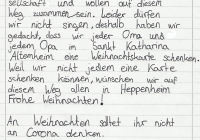 sellschaft und wollen auf diesem
Weg zusammen sein. Leider dürfen
wir nicht singen, deshalb haben wir
gedacht, dass wir jeder Oma und
jedem Opa in Sankt Katharina
Altenheim eine Weihnachtskarte schenken.
Weil wir nicht jedem eine Karte
schenken können, wünschen wir auf
diesem Weg allen in Heppenheim
Frohe Weihnachten!
An Weihnachten solltet ihr nicht
an Corona denken.